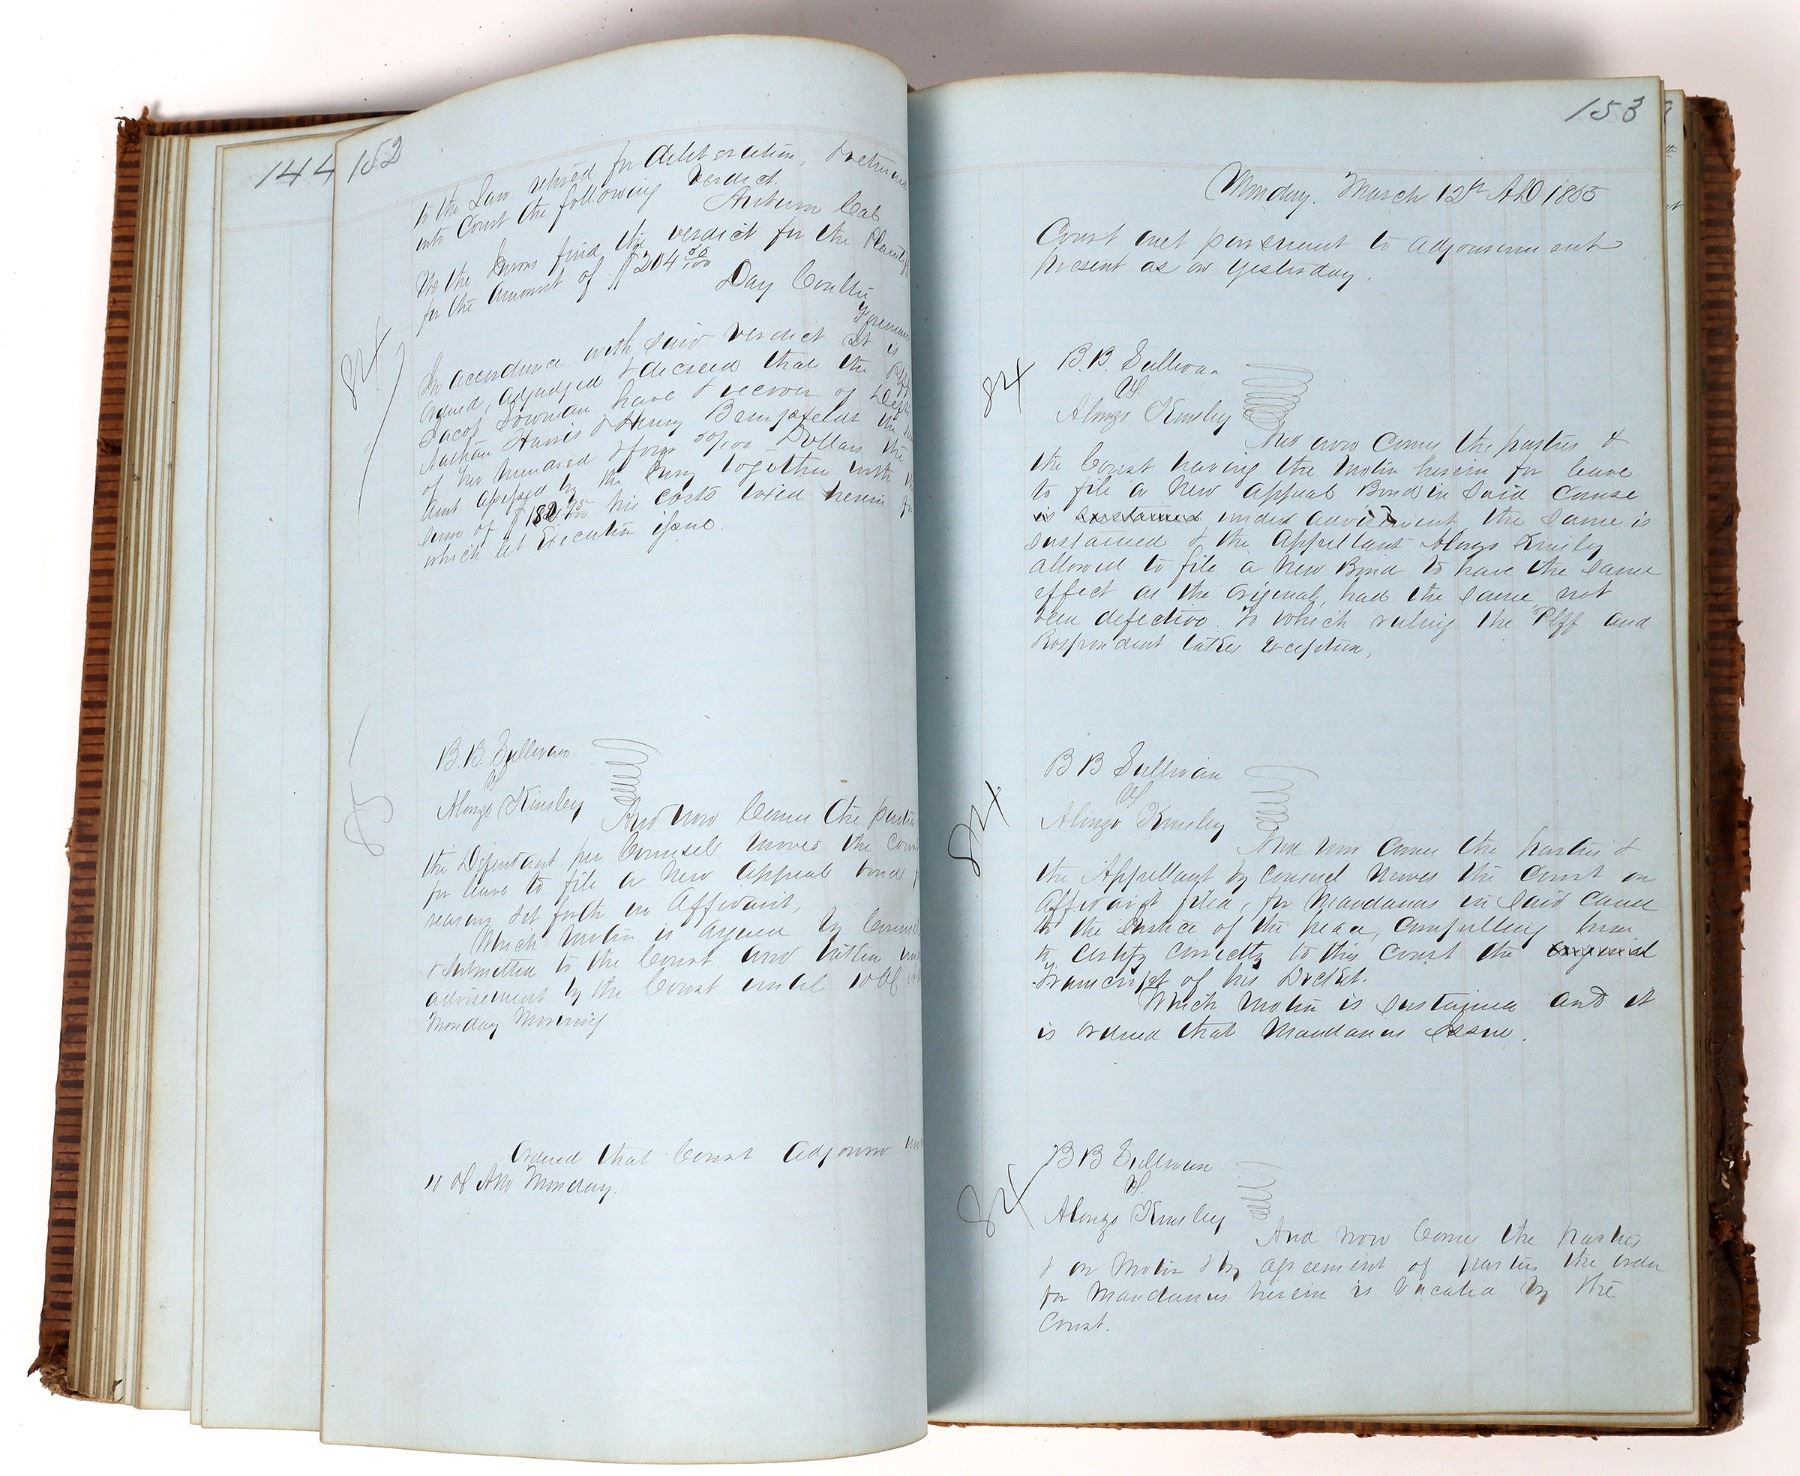 144
152
to the Law retired for deliberation, & returned
into Court the following verdict
Autumn
We the Jurors find the verdict for the Plaintiff
for the Amount of $204 50/100
Day
Foreman
84
In accordance with said verdict It is
Ordered, adjudged & decreed that the Plff
Jacob have & recover of Deft
Nathan Harris & Henry the
of two hundred & four 50/100 Dollars the
Amt assessed by the Jury together with
sum of $18 his costs herein
which let Execution issue.
85
B. B. Sullivan
vs
Alonzo Kinsley
And now Comes the parties
the Defendant per Counsels moves the Court
for leave to file a New Appeal bond
reasons set forth in Affidavit,
Which Motion is argued by Counsel
& submitted to the Court and taken
advisement by the Court until 10 Ocl
Monday Morning
Ordered that Court Adjourn
Monday.
153
Monday. March 12th AD 1855
Court met persuant to adjournment
Present as on yesterday.
84
B. B. Sullivan
vs.
Alonzo Kinsley
This now comes the parties &
the Court having the Motion herein for leave
to file a New Appeal Bond in Said Cause
is sustained under advisment, the Same is
sustained & the Appellant Alonzo Kinsley
allowed to file a New Bond to have the same
effect as the Original, had the same not
been defective. To which ruling the Plff and
Respondent takes exception,
84
B B Sullivan
vs
Alonzo Kinsley
And now comes the parties &
the Appellant by Counsel Moves the Court on
Affidavit filed, for Mandamus in Said Cause
to the Justice of the peace, Compelling him
to Certify correctly to this Court the Original
Transcript of his Docket.
Which Motion is sustained And it
is ordered that Mandamus Issue.
84
B B Sullivan
vs.
Alonzo Kinsley
And now Comes the parties
& on Motion & by agreement of parties the order
for Mandamus herein is Vacated by the
Court.